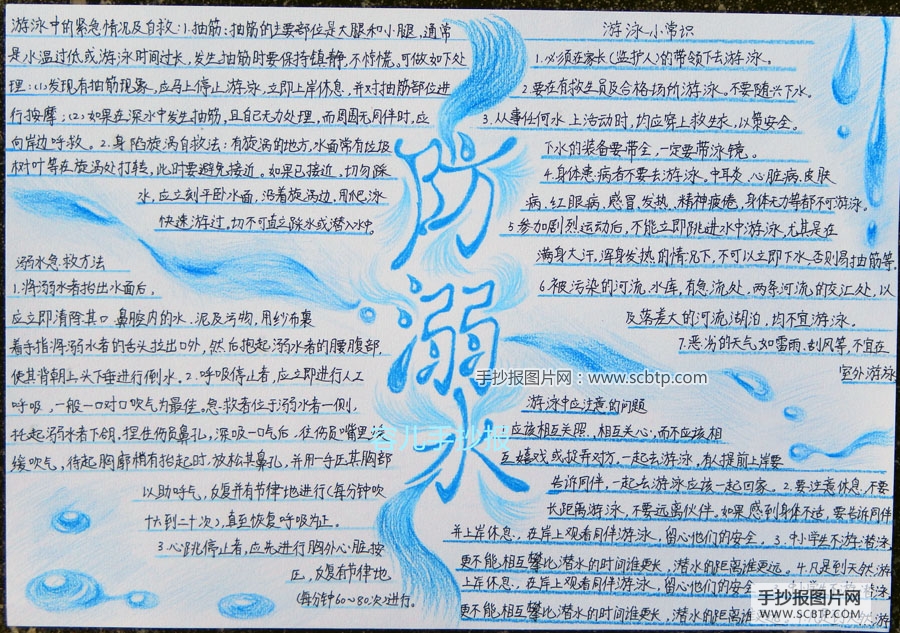 游泳中的紧急情况及自救:1.抽筋:抽筋的主要部位是大腿和小腿,通常
是水温过低或游泳时间过长,发生抽筋时要保持镇静,不惊慌,可做如下处
理:(1)发现有抽筋现象,应马上停止游泳,立即上岸休息,并对抽筋部位进
行按摩;(2)如果在深水中发生抽筋,且自己无力处理,而周围无同伴时,应
向岸边呼救。2.身陷旋涡自救法:有旋涡的地方,水面常有垃圾
树叶等在旋涡处打转,此时要避免接近。如果已接近,切勿踩
水,应立刻平卧水面,沿着旋涡边,用爬泳
快速游过,切不可直立踩水或潜入水中。
溺水急救方法
1.将溺水者抬出水面后,
应立即清除其口鼻腔内的水、泥及污物,用纱布裹
着手指将溺水者的舌头拉出口外,然后抱起溺水者的腰腹部,
使其背朝上头下垂进行倒水。2.呼吸停止者,应立即进行人工
呼吸,一般一口对口吹气为最佳。急救者位于溺水者一侧,
托起溺水者下颌,捏住伤员鼻孔,深吸一口气后,往伤员嘴里缓
缓吹气,待起胸廓稍有抬起时,放松其鼻孔,并用一手压其胸部
以助呼气,反复并有节律地进行(每分钟吹
十六到二十次),直至恢复呼吸为止。
3.心跳停止者,应先进行胸外心脏按
压,反复有节律地
(每分钟60~80次)进行。
防溺水
游泳小常识
1.必须在家长(监护人)的带领下去游泳。
2.要在有救生员及合格场所游泳。不要随兴下水。
3.从事任何水上活动时,均应穿上救生衣,以策安全。
下水的装备要带全,一定要带泳镜。
4.身体患病者不要去游泳。中耳炎、心脏病、皮肤
病、红眼病、感冒、发热、精神疲倦、身体无力等都不可游泳。
5.参加剧烈运动后,不能立即跳进水中游泳,尤其是在
满身大汗,浑身发热的情况下,不可以立即下水,否则易抽筋等。
6.被污染的河流、水库,有急流处,两条河流的交汇处,以
及落差大的河流湖泊,均不宜游泳。
7.恶劣的天气如雷雨、刮风等,不宜在
室外游泳
手抄报图片网:www.scbtp.com
游泳中应注意的问题
应该相互关照,相互关心,而不应该相
互嬉戏或捉弄对方。一起去游泳,有人提前上岸要
告诉同伴,一起去游泳应该一起回家。2.要注意休息,不要
长距离游泳,不要远离伙伴。如果感到身体不适,要告诉同伴
并上岸休息,在岸上观看同伴游泳,留心他们的安全。3.中小学生不游潜泳,
更不能相互攀比潜水的时间谁更长,潜水的距离谁更远。4.凡是到天然游
上岸休息,在岸上观看同伴游泳,留心他们的安全
更不能相互攀比潜水的时间谁更长,潜水的距离谁
手抄报图片网
WWW.SCBTP.COM